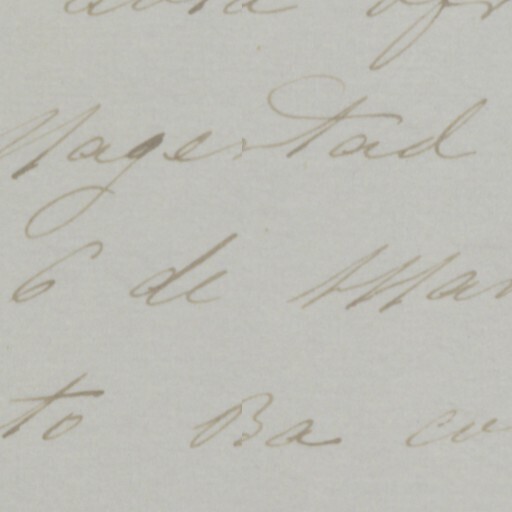 Magestad
6 de Mar
to Ba cu